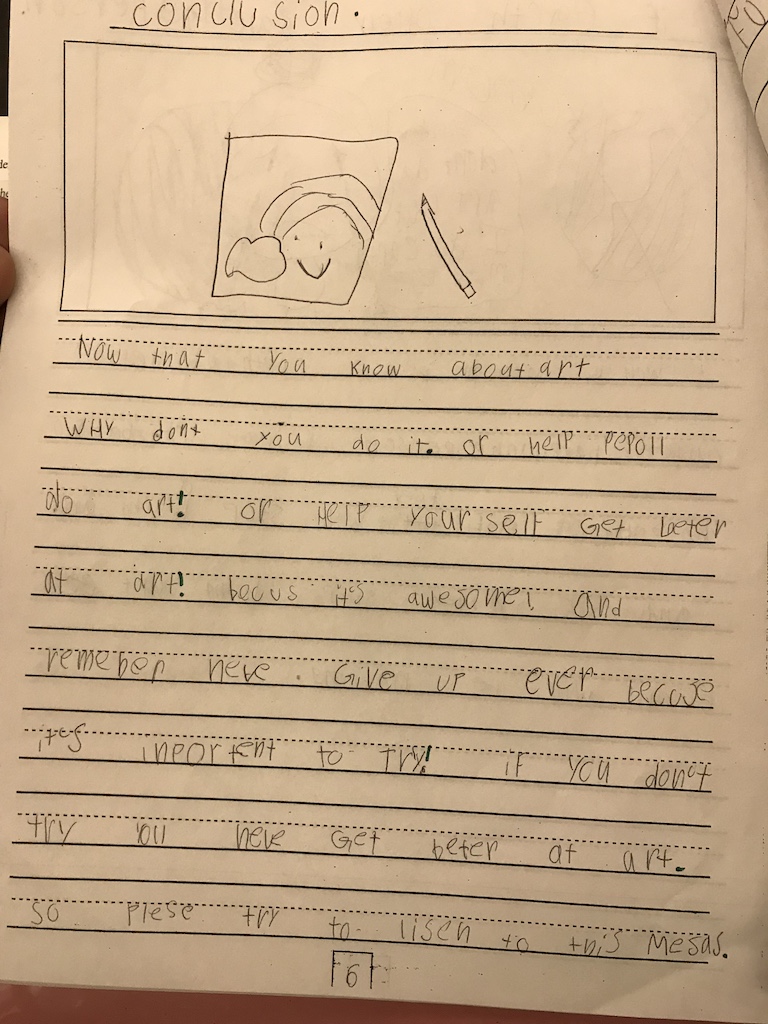 conclusion.
Now that you know about art
WHY dont you do it. or help pepoll
do art! or HelP your self Get beter
at art! becus it's awesome! and
remeber neve. Give up ever becuse
it's inportent to TRY! if you don't
try you neve Get beter at art.
so Plese try to lisen to this Mesas.
6